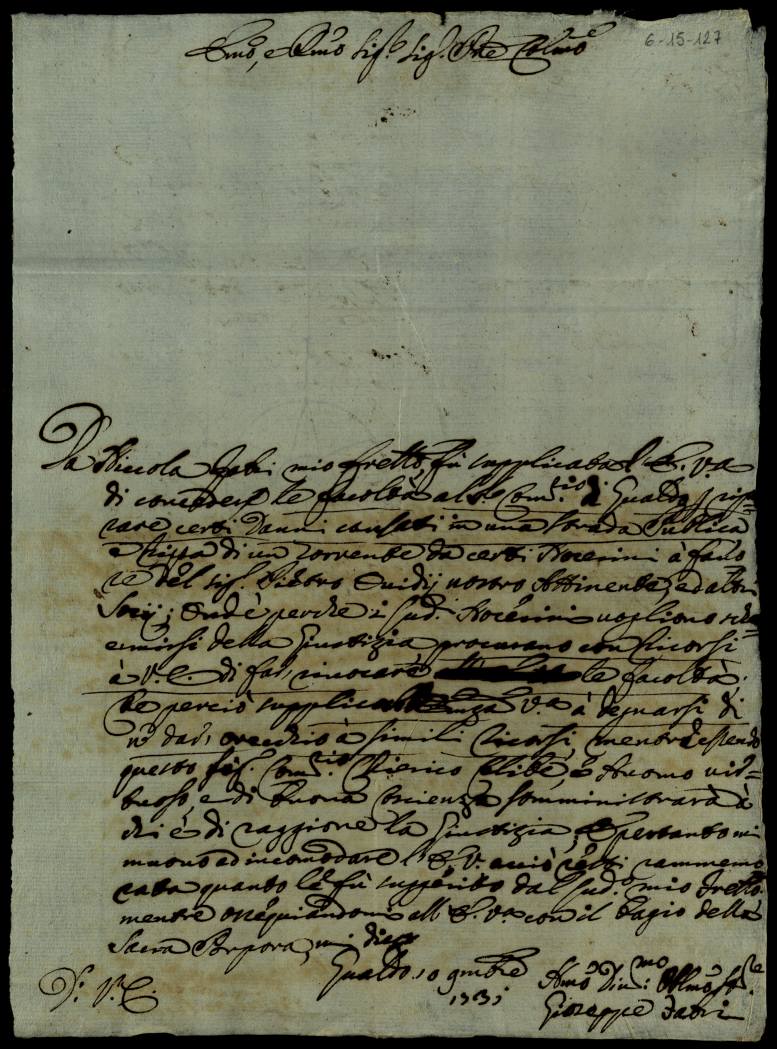 Emo, e Rmo Sig.e Sig. Pne Colmo
6-15-127
Da Niccola Fabri mio Fretto, fù supplicata l'E. V.a
di concedere le facoltà al Sr. Com.rio di Gualdo,
rare certi Danni causati in una strada Publica
e Ripa di un Torrente da certi Nocerini à favo=
re del Sig. Guidij nostro Attinente, ed altri
Socij; Ond'è perche i Sud.i Nocerini vogliono
della Giustizia procurano con Ricorsi
à V. E. di far rivocare le facoltà.
Che perciò supplico V.a à degnarsi di
nō dar orecchio à simili Ricorsi, mentre essendo
questo Sig. Com.rio Chierico Celibe, e Huomo vir=
tuoso, e di buona coscienza somministrarà à
chi è di raggione la Giustizia, e pertanto mi
muovo ad incomodare l'E. V. acciò resti rammemo
rata quanto le fù suggerito dal Sud.o mio Fretto.
mentre ossequiandomi all'E. V.a con il Bagio della
Sacra Porpora, mi dico
D. V. E.
Gualdo 10 9mbre
1731
Hmo Div.mo Oblmo Se.re
Gioseppe Fabri